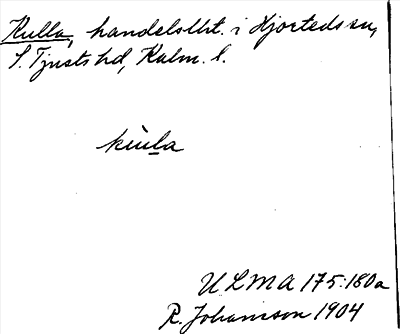 Kulla, handelslht. i Hjorteds sn,
S. Tjusts hd, Kalm. l.
kùla
ULMA 175:180a
R. Johansson 1904